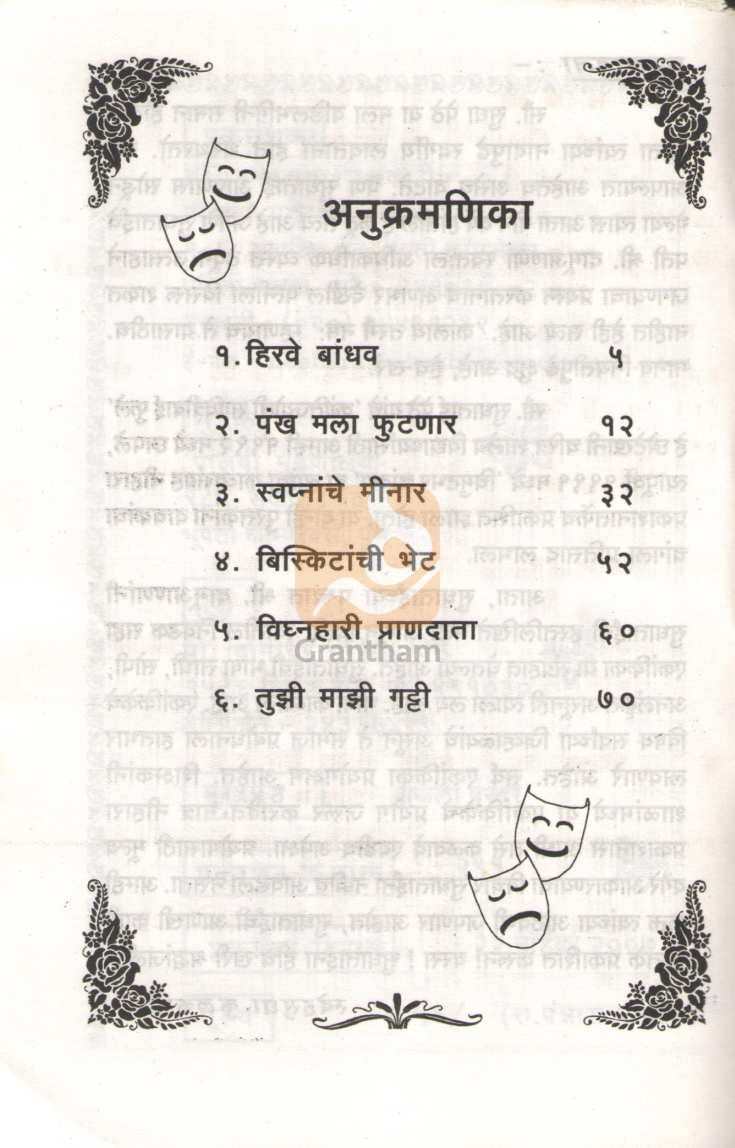 अनुक्रमणिका
१.हिरवे बांधव ५
२. पंख मला फुटणार १२
३. स्वप्नांचे मीनार ३२
४. बिस्किटांची भेट ५२
५. विघ्नहारी प्राणदाता ६०
Grantham
६. तुझी माझी गट्टी ७०